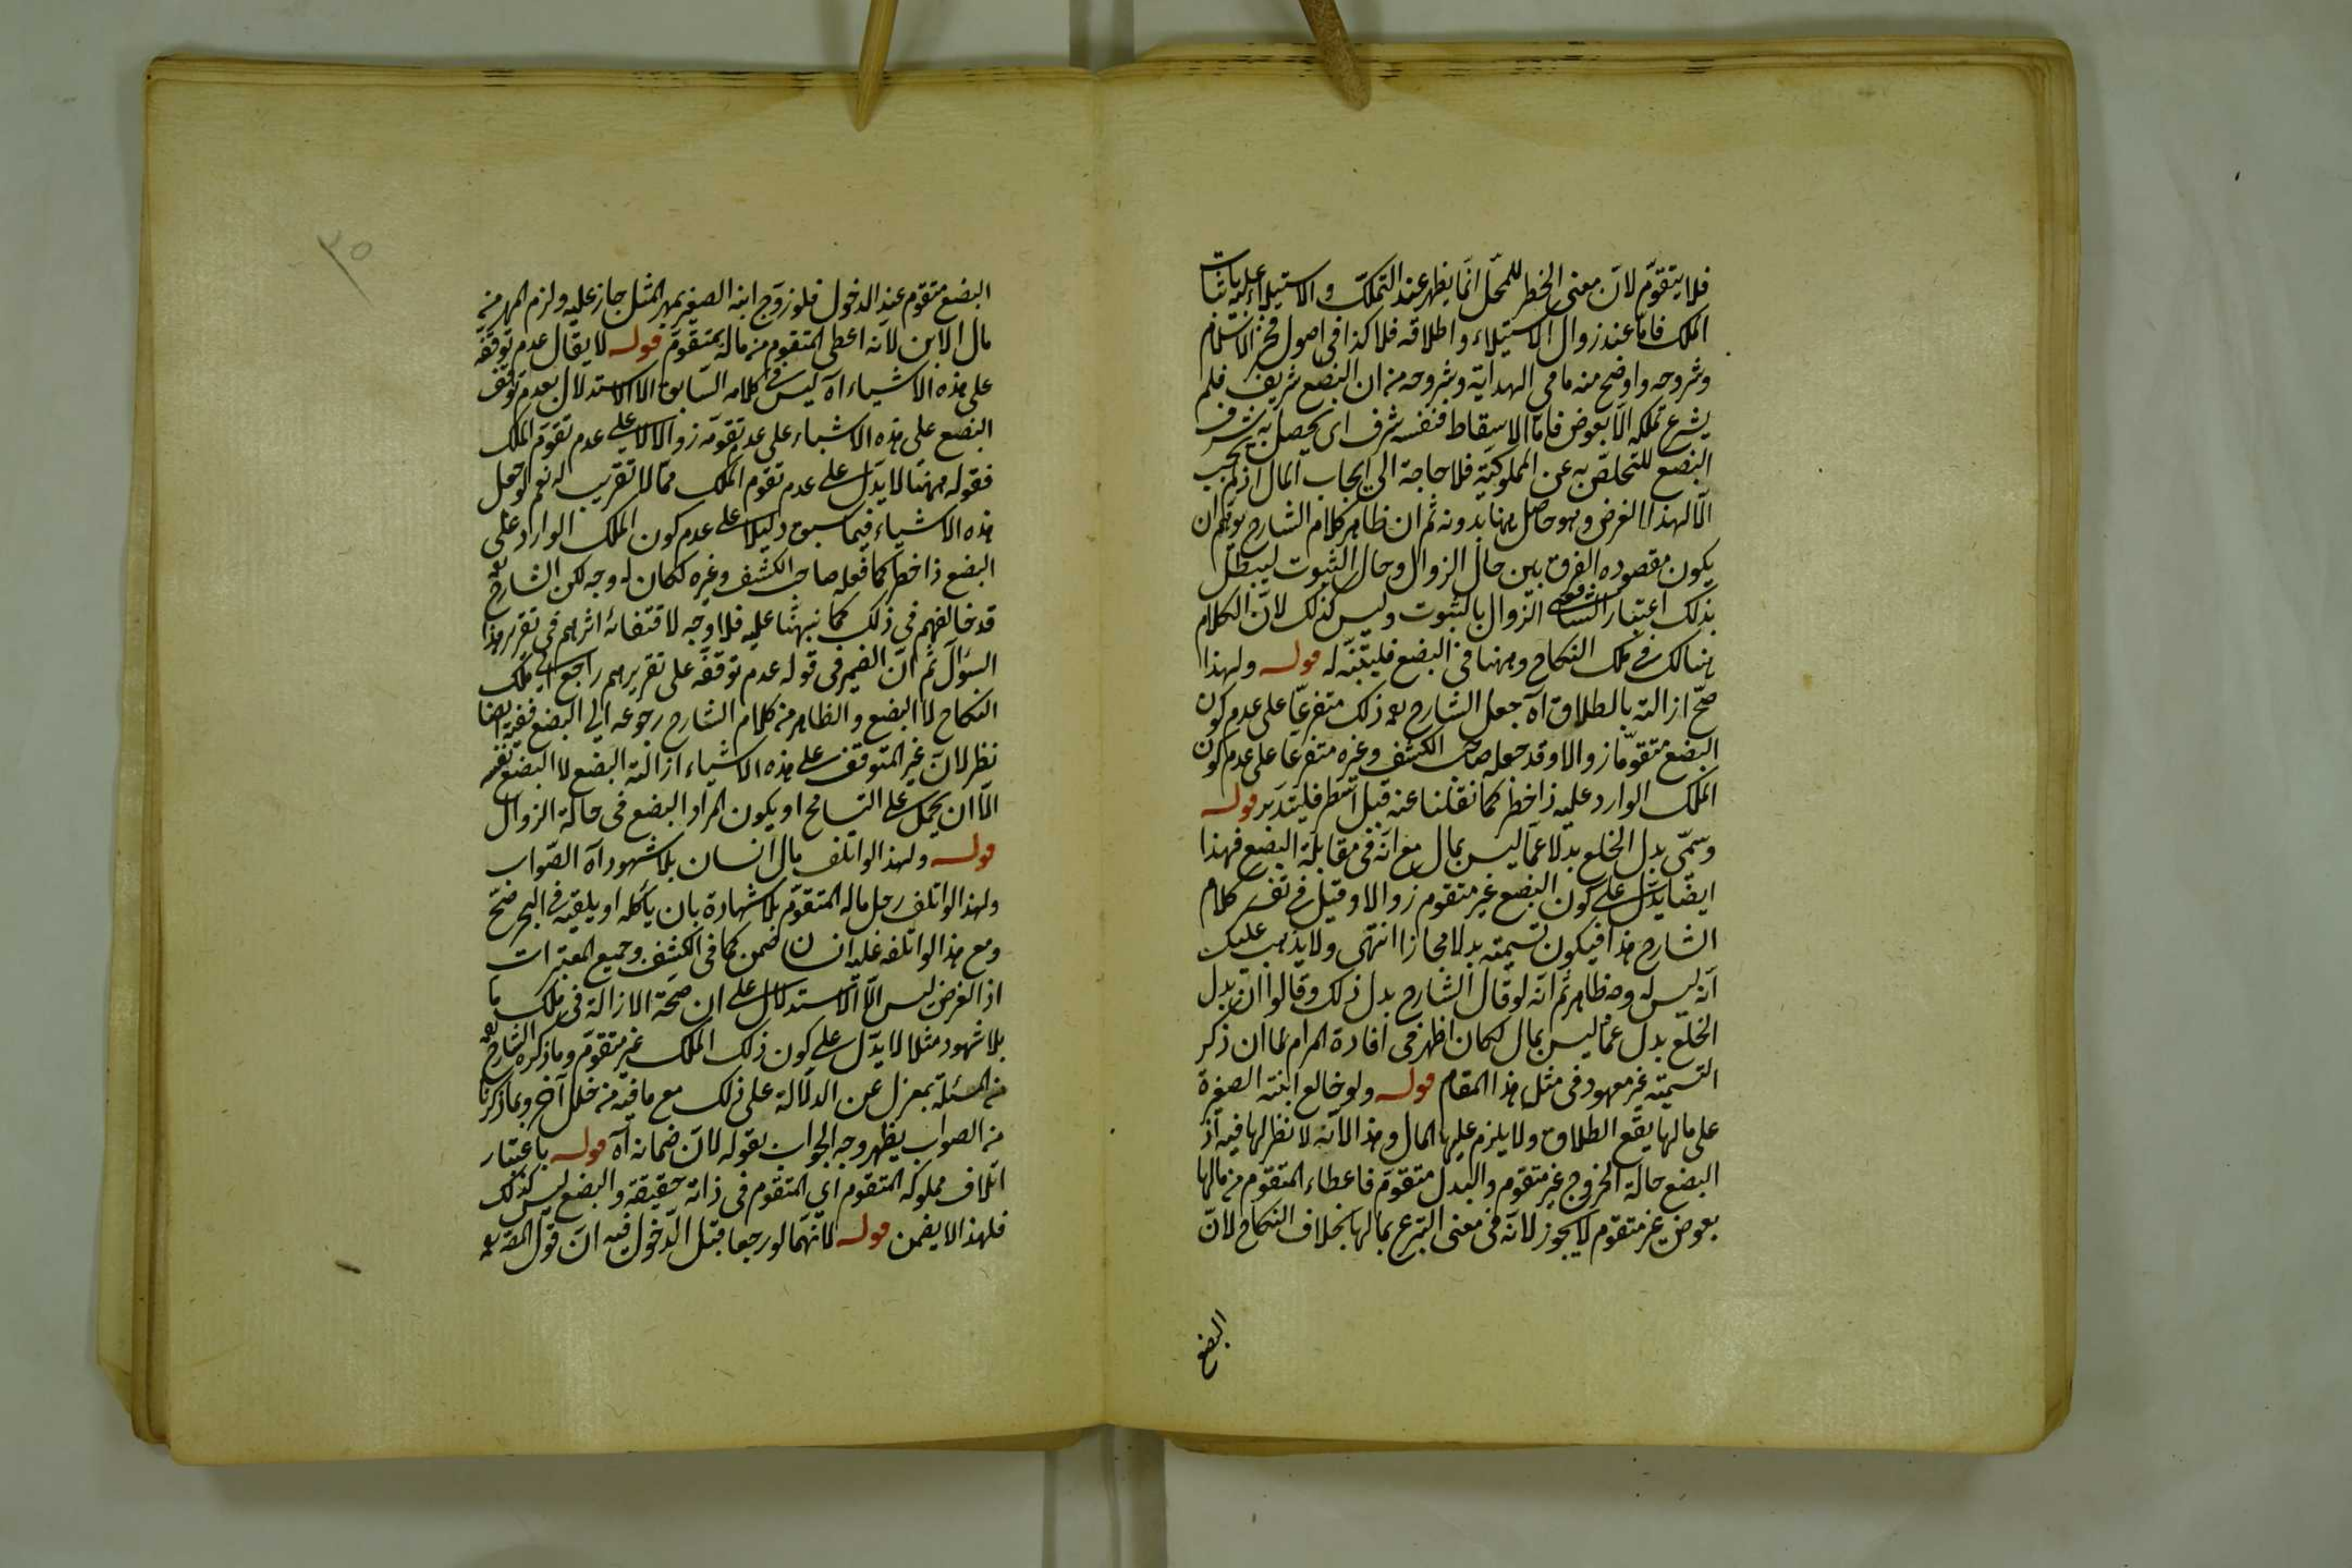 فلا يتقوّم لانّ معنى الخطر للمحلّ انّما يظهر عند التملك والاستيلاء عليه باثبات
الملك فاما عند زوال الاستيلاء واطلاقه فلا كذا فى اصول فخر الاسلام
وشروحه واوضح منه ما فى الهداية وشروحه من ان البضع شريف فلم
يشرع تملكه الّا بعوض فامّا الاسقاط فنفسه شرف اى يحصل به شرف
البضع للتخلص به عن المملوكية فلا حاجة الى ايجاب المال اذ لم يجب
الّا لهذا الغرض وهو حاصل ههنا بدونه ثم ان ظاهر كلام الشارح يوهم ان
يكون مقصوده الفرق بين حال الزوال وحال الثبوت ليبطل
بذلك اعتبار الشافعى الزوال بالثبوت وليس كذلك لانّ الكلام
هنالك فى ملك النكاح وههنا فى البضع فليتنبّه له قوله ولهذا
صحّ ازالته بالطلاق آه جعل الشارح ره ذلك متفرعّا على عدم كون
البضع متقوّما زوالا وقد جعله صاحب الكشف وغيره متفرعا على عدم كون
الملك الوارد عليه ذا خطر كما نقلنا عنه قبل اسطر فليتدبر قوله
وسمّى بدل الخلع بدلا عمّا ليس بمال مع انّه فى مقابلة البضع فهذا
ايضا يدل على كون البضع غير متقوم زوالا وقيل فى تفسير كلام
الشارح هذا فيكون تسميته بدلا مجازا انتهى ولا يذهب عليك
انّه ليس له وجه ظاهر ثم انّه لو قال الشارح بدل ذلك وقالوا ان بدل
الخلع بدل عمّا ليس بمال لكان اظهر فى افادة المرام لما ان ذكر
التسمية غير معهود فى مثل هذا المقام قوله ولو خالع ابنته الصغيرة
على مالها يقع الطلاق ولا يلزم عليها المال وهذا لانّه لا نظر لها فيه اذ
البضع حالة الخروج غير متقوم والبدل متقوّم فاعطاء المتقوّم من مالها
بعوض غير متقوم لا يجوز لانّه فى معنى التبرع بمالها بخلاف النكاح لانّ
البضع
٣٥
البضع متقوم عند الدخول فلو زوّج ابنه الصغير بمهر المثل جاز عليه ولزم المهر من
مال الابن لانّه اعطى المتقوم من ماله بمتقوّم قوله لا يقال عدم توقفه
على هذه الاشياء آه ليس فى كلامه السابق الا الاستدلال بعدم توقف
البضع على هذه الاشياء على عدم تقومّه زوالا لا على عدم تقوّم الملك
فقوله ههنا لا يدل على عدم تقوم الملك ممّا لا تقريب له نعم لو جعل
هذه الاشياء فيما سبق دليلا على عدم كون الملك الوارد على
البضع ذا خطر كما فعله صاحب الكشف وغيره لكان له وجه لكن الشارح ره
قد خالفهم فى ذلك كما نبهنا عليه فلا وجه لاقتفائه اثرهم فى تقرير هذا
السؤال ثم انّ الضمير فى قوله عدم توقفه على تقريرهم راجع الى ملك
النكاح لا البضع والظاهر من كلام الشارح رجوعه الى البضع ففيه ايضا
نظر لانّ غير المتوقف على هذه الاشياء ازالة البضع لا البضع نفسه
الّا ان يحمل على التسامح او يكون المراد البضع فى حالة الزوال
قوله ولهذا لو اتلف مال انسان بلا شهود آه الصّواب
ولهذا لو اتلف رجل ماله المتقوّم بلا شهادة بان يأكله او يلقيه فى البحر صحّ
ومع هذا لو اتلفه عليه انسان ضمن كما فى الكشف وجميع المعتبرات
اذ الغرض ليس الّا الاستدلال على ان صحّة الازالة فى ملك ما
بلا شهود مثلا لا يدّل على كون ذلك الملك غير متقوّم وما ذكره الشارح ره
من المسئلة بمعزل عن الدلالة على ذلك مع ما فيه من خلل آخر وبما ذكرنا
من الصواب يظهر وجه الجواب بقوله لانّ ضمانه آه قوله باعتبار
اتلاف مملوكه المتقوم اى المتقوم فى ذاته حقيقة والبضع ليس كذلك
فلهذا لا يضمن قوله لانّهما لو رجعا قبل الدّخول فيه انّ قول المصّ ره